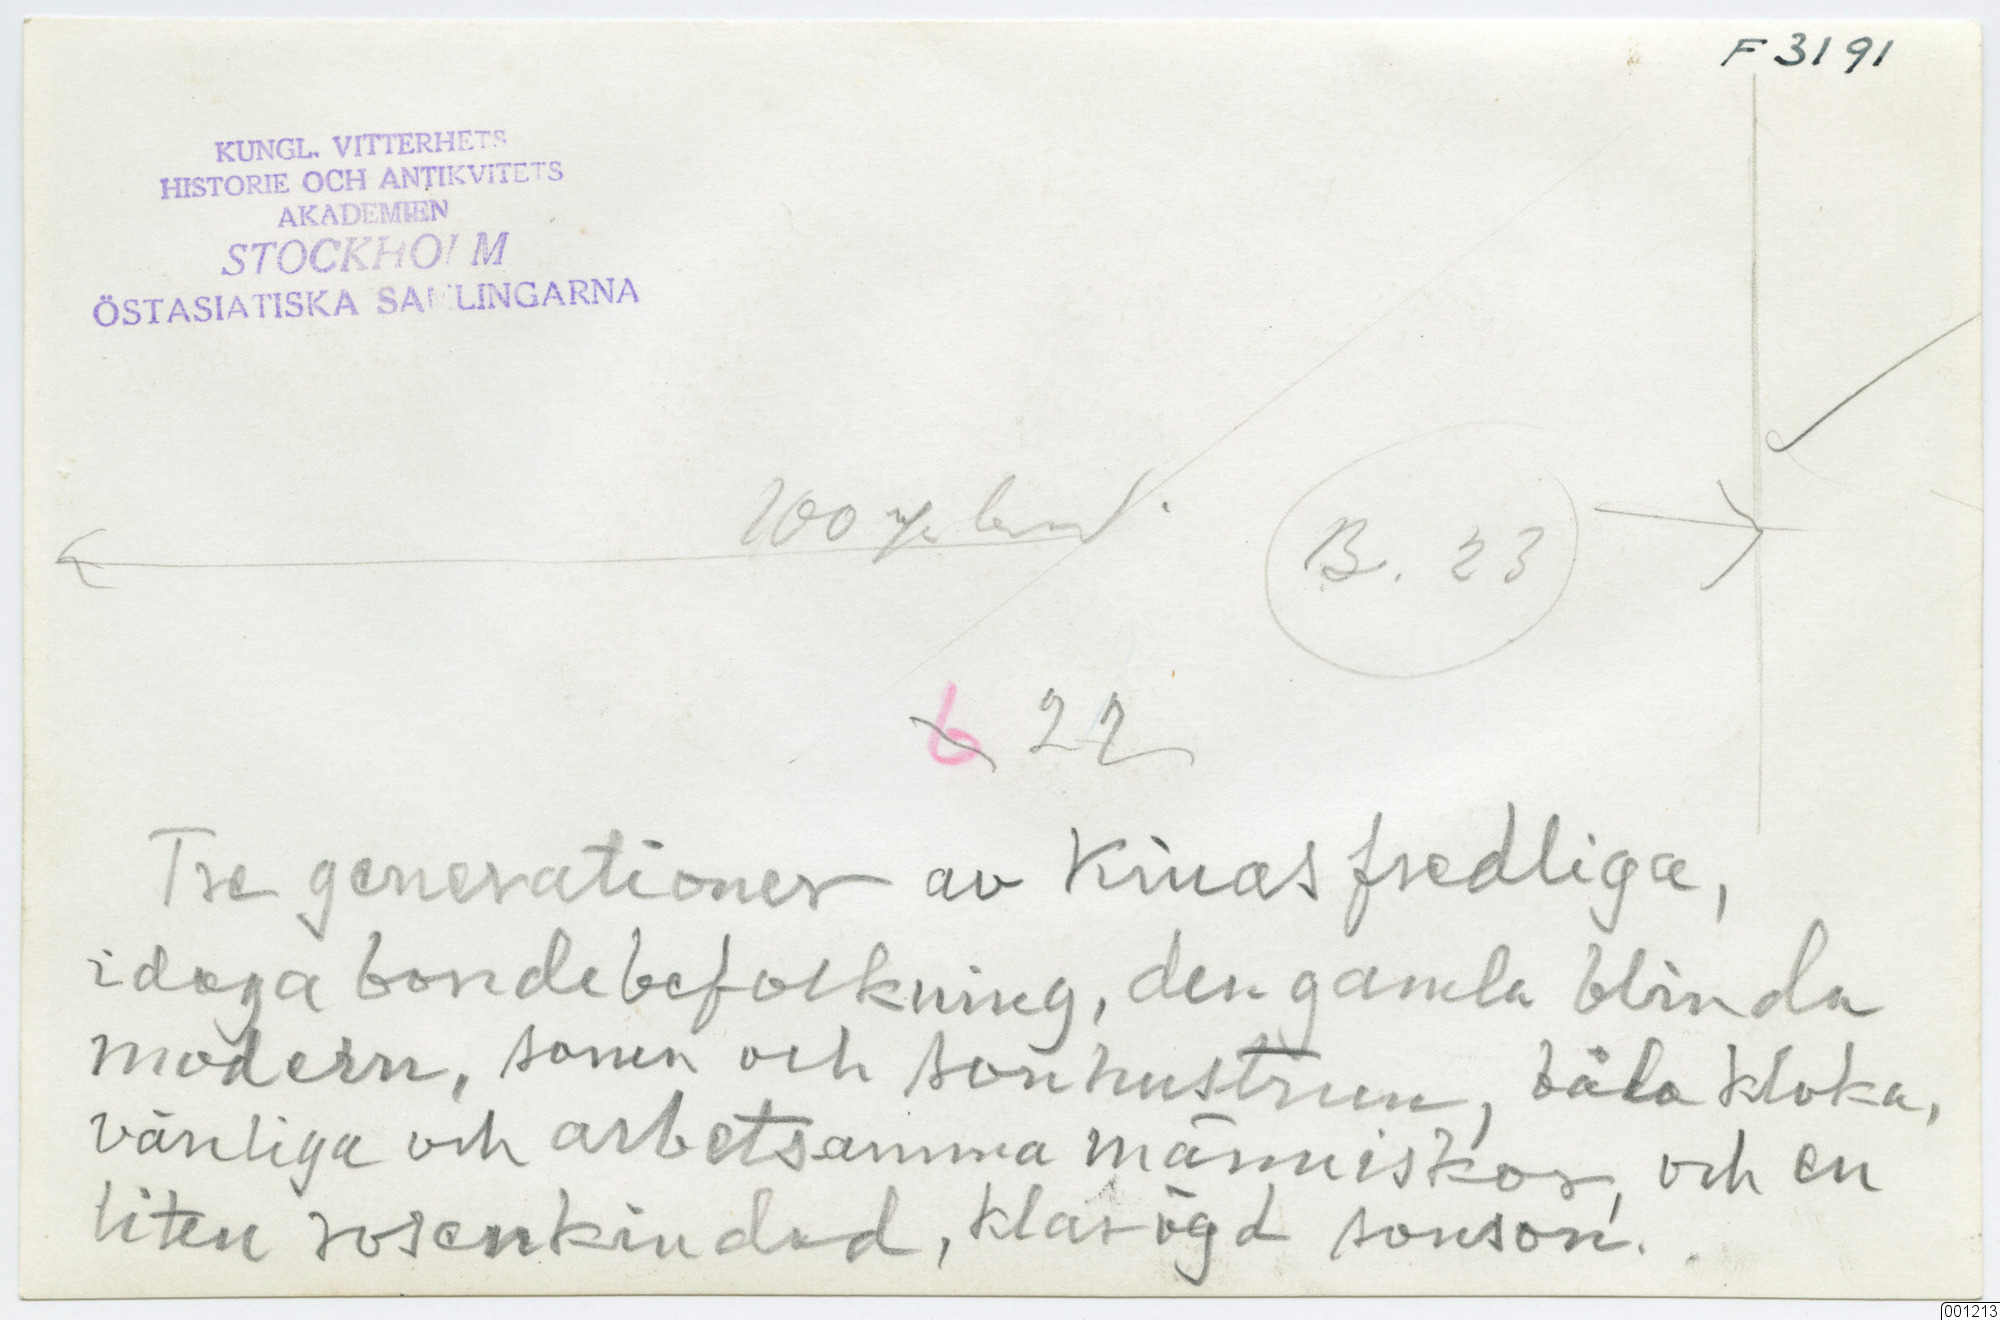 F 3191
KUNGL. VITTERHETS
HISTORIE OCH ANTIKVITETS
AKADEMIEN
STOCKHOLM
ÖSTASIATISKA SAMLINGARNA
B. 23
6 22
Tre generationer av Kinas fredliga,
idoga bondebefolkning, den gamla blinda
modern, sonen och sonhustrun, båda kloka,
vänliga och arbetsamma människor, och en
liten rosenkindad, klarögd sonson.
001213